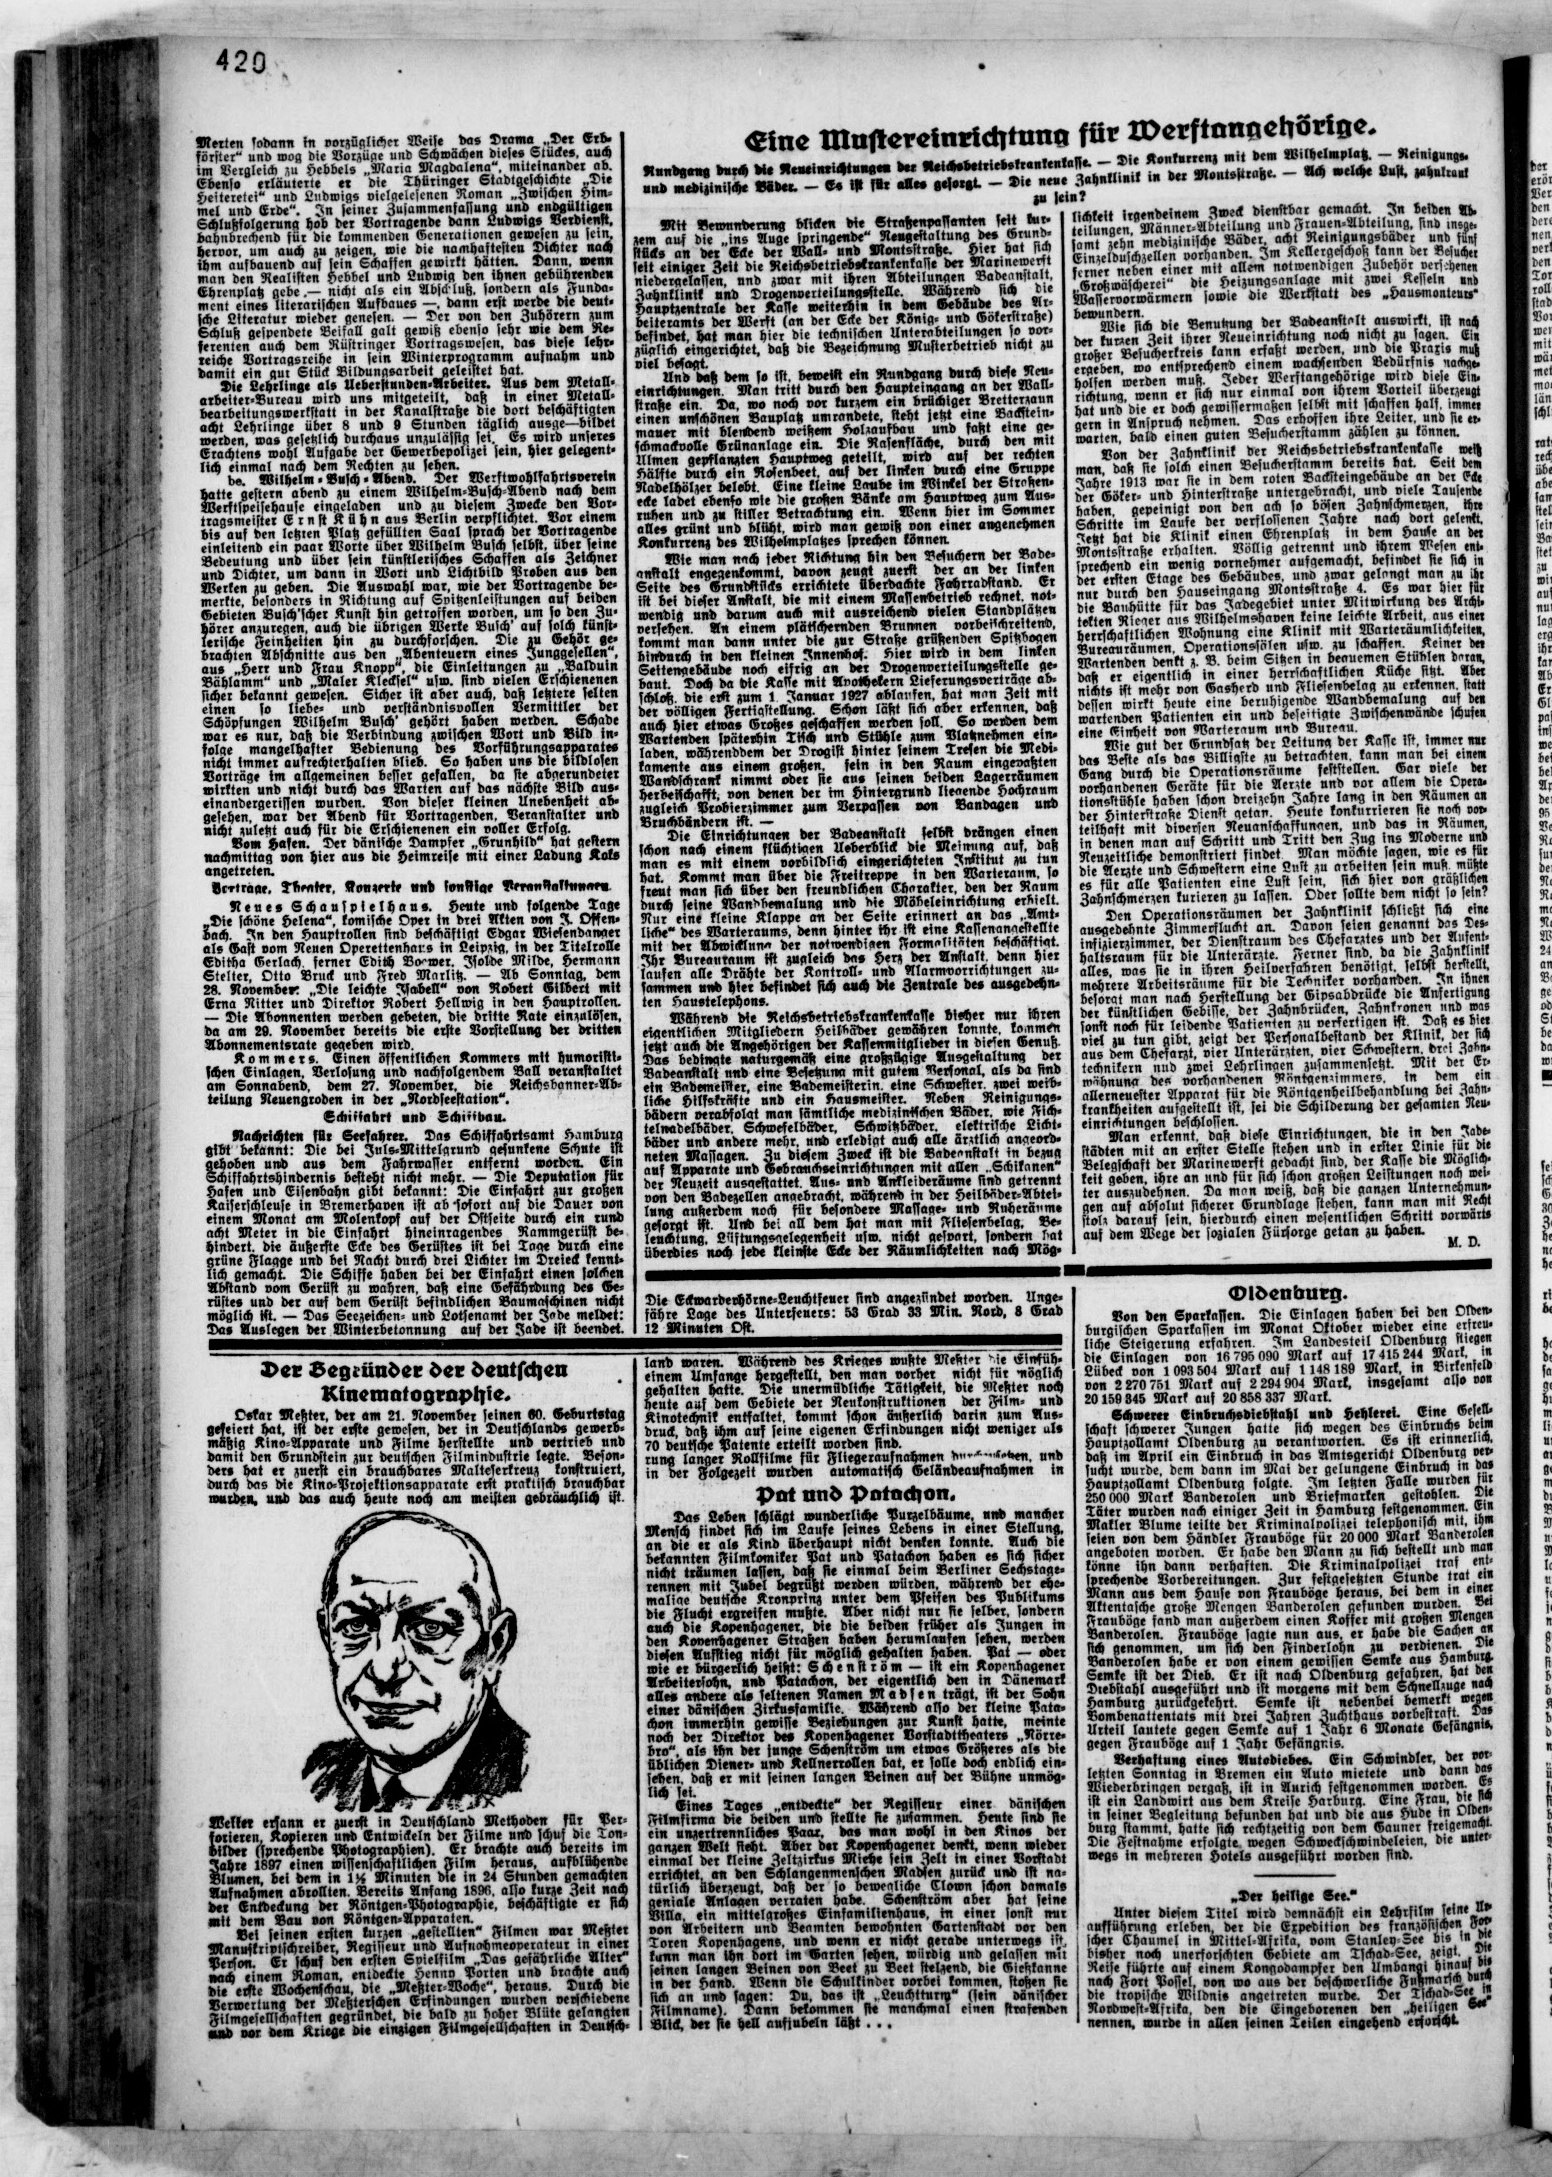 420
Merten sodann in vorzüglicher Weise das Drama „Der Erb-
förster“ und wog die Vorzüge und Schwächen dieses Stückes, auch
im Vergleich zu Hebbels „Maria Magdalena“, miteinander ab.
Ebenso erläuterte er die Thüringer Stadtgeschichte „Die
Heiteretei“ und Ludwigs vielgelesenen Roman „Zwischen Him-
mel und Erde“. In seiner Zusammenfassung und endgültigen
Schlußfolgerung hob der Vortragende dann Ludwigs Verdienst,
bahnbrechend für die kommenden Generationen gewesen zu sein,
hervor, um auch zu zeigen, wie die namhaftesten Dichter nach
ihm aufbauend auf sein Schaffen gewirkt hätten. Dann, wenn
man den Realisten Hebbel und Ludwig den ihnen gebührenden
Ehrenplatz gebe — nicht als ein Abschluß, sondern als Funda-
ment eines literarischen Aufbaues —, dann erst werde die deut-
sche Literatur wieder genesen. — Der von den Zuhörern zum
Schluß gespendete Beifall galt gewiß ebenso sehr wie dem Re-
ferenten auch dem Rüstringer Vortragswesen, das diese lehr-
reiche Vortragsreihe in sein Winterprogramm aufnahm und
damit ein gut Stück Bildungsarbeit geleistet hat.
Die Lehrlinge als Ueberstunden-Arbeiter. Aus dem Metall-
arbeiter-Bureau wird uns mitgeteilt, daß in einer Metall-
bearbeitungswerkstatt in der Kanalstraße die dort beschäftigten
acht Lehrlinge über 8 und 9 Stunden täglich ausge—bildet
werden, was gesetzlich durchaus unzulässig sei. Es wird unseres
Erachtens wohl Aufgabe der Gewerbepolizei sein, hier gelegent-
lich einmal nach dem Rechten zu sehen.
be. Wilhelm-Busch-Abend. Der Werftwohlfahrtsverein
hatte gestern abend zu einem Wilhelm-Busch-Abend nach dem
Werftspeisehause eingeladen und zu diesem Zwecke den Vor-
tragsmeister Ernst Kühn aus Berlin verpflichtet. Vor einem
bis auf den letzten Platz gefüllten Saal sprach der Vortragende
einleitend ein paar Worte über Wilhelm Busch selbst, über seine
Bedeutung und über sein künstlerisches Schaffen als Zeichner
und Dichter, um dann in Wort und Lichtbild Proben aus den
Werken zu geben. Die Auswahl war, wie der Vortragende be-
merkte, besonders in Richtung auf Spitzenleistungen auf beiden
Gebieten Busch'scher Kunst hin getroffen worden, um so den Zu-
hörer anzuregen, auch die übrigen Werke Busch' auf solch künst-
lerische Feinheiten hin zu durchforschen. Die zu Gehör ge-
brachten Abschnitte aus den „Abenteuern eines Junggesellen“,
aus „Herr und Frau Knopp“, die Einleitungen zu „Balduin
Bählamm“ und „Maler Klecksel“ usw. sind vielen Erschienenen
sicher bekannt gewesen. Sicher ist aber auch, daß letztere selten
einen so liebe- und verständnisvollen Vermittler der
Schöpfungen Wilhelm Busch' gehört haben werden. Schade
war es nur, daß die Verbindung zwischen Wort und Bild in-
folge mangelhafter Bedienung des Vorführungsapparates
nicht immer aufrechterhalten blieb. So haben uns die bildlosen
Vorträge im allgemeinen besser gefallen, da sie abgerundeter
wirkten und nicht durch das Warten auf das nächste Bild aus-
einandergerissen wurden. Von dieser kleinen Unebenheit ab-
gesehen, war der Abend für Vortragenden, Veranstalter und
nicht zuletzt auch für die Erschienenen ein voller Erfolg.
Vom Hafen. Der dänische Dampfer „Grunhild“ hat gestern
nachmittag von hier aus die Heimreise mit einer Ladung Koks
angetreten.
Vorträge, Theater, Konzerte und sonstige Veranstaltungen.
Neues Schauspielhaus. Heute und folgende Tage
„Die schöne Helena“, komische Oper in drei Akten von J. Offen-
bach. In den Hauptrollen sind beschäftigt Edgar Wiesendanger
als Gast vom Neuen Operettenhaus in Leipzig, in der Titelrolle
Editha Gerlach, ferner Edith Boewer, Isolde Milde, Hermann
Stelter, Otto Bruck und Fred Marlitz. — Ab Sonntag, dem
28. November: „Die leichte Isabell“ von Robert Gilbert mit
Erna Ritter und Direktor Robert Hellwig in den Hauptrollen.
— Die Abonnenten werden gebeten, die dritte Rate einzulösen,
da am 29. November bereits die erste Vorstellung der dritten
Abonnementsrate gegeben wird.
Kommers. Einen öffentlichen Kommers mit humoristi-
schen Einlagen, Verlosung und nachfolgendem Ball veranstaltet
am Sonnabend, dem 27. November, die Reichsbanner-Ab-
teilung Neuengroden in der „Nordseestation“.
Schiffahrt und Schiffbau.
Nachrichten für Seefahrer. Das Schiffahrtsamt Hamburg
gibt bekannt: Die bei Juls-Mittelgrund gesunkene Schute ist
gehoben und aus dem Fahrwasser entfernt worden. Ein
Schiffahrtshindernis besteht nicht mehr. — Die Deputation für
Hafen und Eisenbahn gibt bekannt: Die Einfahrt zur großen
Kaiserschleuse in Bremerhaven ist ab sofort auf die Dauer von
einem Monat am Molenkopf auf der Ostseite durch ein rund
acht Meter in die Einfahrt hineinragendes Rammgerüst be-
hindert, die äußerste Ecke des Gerüstes ist bei Tage durch eine
grüne Flagge und bei Nacht durch drei Lichter im Dreieck kennt-
lich gemacht. Die Schiffe haben bei der Einfahrt einen solchen
Abstand vom Gerüst zu wahren, daß eine Gefährdung des Ge-
rüstes und der auf dem Gerüst befindlichen Baumaschinen nicht
möglich ist. — Das Seezeichen- und Lotsenamt der Jade meldet:
Das Auslegen der Winterbetonnung auf der Jade ist beendet.
Die Eckwarderhörne-Leuchtfeuer sind angezündet worden. Unge-
fähre Lage des Unterfeuers: 53 Grad 33 Min. Nord, 8 Grad
12 Minuten Ost.
Eine Mustereinrichtung für Werftangehörige.
Rundgang durch die Neueinrichtungen der Reichsbetriebskrankenkasse. — Die Konkurrenz mit dem Wilhelmplatz. — Reinigungs-
und medizinische Bäder. — Es ist für alles gesorgt. — Die neue Zahnklinik in der Montsstraße. — Ach welche Lust, zahnkrank
zu sein?
Mit Bewunderung blicken die Straßenpassanten seit kur-
zem auf die „ins Auge springende“ Neugestaltung des Grund-
stücks an der Ecke der Wall- und Montsstraße. Hier hat sich
seit einiger Zeit die Reichsbetriebskrankenkasse der Marinewerft
niedergelassen, und zwar mit ihren Abteilungen Badeanstalt,
Zahnklinik und Drogenverteilungsstelle. Während sich die
Hauptzentrale der Kasse weiterhin in dem Gebäude des Ar-
beiteramts der Werft (an der Ecke der König- und Gökerstraße)
befindet, hat man hier die technischen Unterabteilungen so vor-
züglich eingerichtet, daß die Bezeichnung Musterbetrieb nicht zu
viel besagt.
Und daß dem so ist, beweist ein Rundgang durch diese Neu-
einrichtungen. Man tritt durch den Haupteingang an der Wall-
straße ein. Da, wo noch vor kurzem ein brüchiger Bretterzaun
einen unschönen Bauplatz umrandete, steht jetzt eine Backstein-
mauer mit blendend weißem Holzaufbau und faßt eine ge-
schmackvolle Grünanlage ein. Die Rasenfläche, durch den mit
Ulmen gepflanzten Hauptweg geteilt, wird auf der rechten
Hälfte durch ein Rosenbeet, auf der linken durch eine Gruppe
Nadelhölzer belebt. Eine kleine Laube im Winkel der Straßen-
ecke ladet ebenso wie die großen Bänke am Hauptweg zum Aus-
ruhen und zu stiller Betrachtung ein. Wenn hier im Sommer
alles grünt und blüht, wird man gewiß von einer angenehmen
Konkurrenz des Wilhelmplatzes sprechen können.
Wie man nach jeder Richtung hin den Besuchern der Bade-
anstalt engegenkommt, davon zeugt zuerst der an der linken
Seite des Grundstücks errichtete überdachte Fahrradstand. Er
ist bei dieser Anstalt, die mit einem Massenbetrieb rechnet, not-
wendig und darum auch mit ausreichend vielen Standplätzen
versehen. An einem plätschernden Brunnen vorbeischreitend,
kommt man dann unter die zur Straße grüßenden Spitzbogen
hindurch in den kleinen Innenhof. Hier wird in dem linken
Seitengebäude noch eifrig an der Drogenverteilungsstelle ge-
baut. Doch da die Kasse mit Apothekern Lieferungsverträge ab-
schloß, die erst zum 1. Januar 1927 ablaufen, hat man Zeit mit
der völligen Fertigstellung. Schon läßt sich aber erkennen, daß
auch hier etwas Großes geschaffen werden soll. So werden dem
Wartenden späterhin Tisch und Stühle zum Platznehmen ein-
laden, währenddem der Drogist hinter seinem Tresen die Medi-
kamente aus einem großen, fein in den Raum eingepaßten
Wandschrank nimmt oder sie aus seinen beiden Lagerräumen
herbeischafft, von denen der im Hintergrund liegende Hochraum
zugleich Probierzimmer zum Verpassen von Bandagen und
Bruchbändern ist. —
Die Einrichtungen der Badeanstalt selbst drängen einen
schon nach einem flüchtigen Ueberblick die Meinung auf, daß
man es mit einem vorbildlich eingerichteten Institut zu tun
hat. Kommt man über die Freitreppe in den Warteraum, so
freut man sich über den freundlichen Charakter, den der Raum
durch seine Wandbemalung und die Möbeleinrichtung erhielt.
Nur eine kleine Klappe an der Seite erinnert an das „Amt-
liche“ des Warteraums, denn hinter ihr ist eine Kassenangestellte
mit der Abwicklung der notwendigen Formalitäten beschäftigt.
Ihr Bureauraum ist zugleich das Herz der Anstalt, denn hier
laufen alle Drähte der Kontroll- und Alarmvorrichtungen zu-
sammen und hier befindet sich auch die Zentrale des ausgedehn-
ten Haustelephons.
Während die Reichsbetriebskrankenkasse bisher nur ihren
eigentlichen Mitgliedern Heilbäder gewähren konnte, kommen
jetzt auch die Angehörigen der Kassenmitglieder in diesen Genuß.
Das bedingte naturgemäß eine großzügige Ausgestaltung der
Badeanstalt und eine Besetzung mit gutem Personal, als da sind
ein Bademeister, eine Bademeisterin, eine Schwester, zwei weib-
liche Hilfskräfte und ein Hausmeister. Neben Reinigungs-
bädern verabfolgt man sämtliche medizinischen Bäder, wie Fich-
telnadelbäder, Schwefelbäder, Schwitzbäder, elektrische Licht-
bäder und andere mehr, und erledigt auch alle ärztlich angeord-
neten Massagen. Zu diesem Zweck ist die Badeanstalt in bezug
auf Apparate und Gebrauchseinrichtungen mit allen „Schikanen“
der Neuzeit ausgestattet. Aus- und Ankleideräume sind getrennt
von den Badezellen angebracht, während in der Heilbäder-Abtei-
lung außerdem noch für besondere Massage- und Ruheräume
gesorgt ist. Und bei all dem hat man mit Fliesenbelag, Be-
leuchtung, Lüftungsgelegenheit usw. nicht gespart, sondern hat
überdies noch jede kleinste Ecke der Räumlichkeiten nach Mög-
lichkeit irgendeinem Zweck dienstbar gemacht. In beiden Ab-
teilungen, Männer-Abteilung und Frauen-Abteilung, sind insge-
samt zehn medizinische Bäder, acht Reinigungsbäder und fünf
Einzelduschzellen vorhanden. Im Kellergeschoß kann der Besucher
ferner neben einer mit allem notwendigen Zubehör versehenen
„Großwäscherei“ die Heizungsanlage mit zwei Kesseln und
Wasservorwärmern sowie die Werkstatt des „Hausmonteurs“
bewundern.
Wie sich die Benutzung der Badeanstalt auswirkt, ist nach
der kurzen Zeit ihrer Neueinrichtung noch nicht zu sagen. Ein
großer Besucherkreis kann erfaßt werden, und die Praxis muß
ergeben, wo entsprechend einem wachsenden Bedürfnis nachge-
holfen werden muß. Jeder Werftangehörige wird diese Ein-
richtung, wenn er sich nur einmal von ihrem Vorteil überzeugt
hat und die er doch gewissermaßen selbst mit schaffen half, immer
gern in Anspruch nehmen. Das erhoffen ihre Leiter, und sie er-
warten, bald einen guten Besucherstamm zählen zu können.
Von der Zahnklinik der Reichsbetriebskrankenkasse weiß
man, daß sie solch einen Besucherstamm bereits hat. Seit dem
Jahre 1913 war sie in dem roten Backsteingebäude an der Ecke
der Göker- und Hinterstraße untergebracht, und viele Tausende
haben, gepeinigt von den ach so bösen Zahnschmerzen, ihre
Schritte im Laufe der verflossenen Jahre nach dort gelenkt.
Jetzt hat die Klinik einen Ehrenplatz in dem Hause an der
Montsstraße erhalten. Völlig getrennt und ihrem Wesen ent-
sprechend ein wenig vornehmer aufgemacht, befindet sie sich in
der ersten Etage des Gebäudes, und zwar gelangt man zu ihr
nur durch den Hauseingang Montsstraße 4. Es war hier für
die Bauhütte für das Jadegebiet unter Mitwirkung des Archi-
tekten Rieger aus Wilhelmshaven keine leichte Arbeit, aus einer
herrschaftlichen Wohnung eine Klinik mit Warteräumlichkeiten,
Bureauräumen, Operationssälen usw. zu schaffen. Keiner der
Wartenden denkt z. B. beim Sitzen in bequemen Stühlen daran,
daß er eigentlich in einer herrschaftlichen Küche sitzt. Aber
nichts ist mehr von Gasherd und Fliesenbelag zu erkennen, statt
dessen wirkt heute eine beruhigende Wandbemalung auf den
wartenden Patienten ein und beseitigte Zwischenwände schufen
eine Einheit von Warteraum und Bureau.
Wie gut der Grundsatz der Leitung der Kasse ist, immer nur
das Beste als das Billigste zu betrachten, kann man bei einem
Gang durch die Operationsräume feststellen. Gar viele der
vorhandenen Geräte für die Aerzte und vor allem die Opera-
tionsstühle haben schon dreizehn Jahre lang in den Räumen an
der Hinterstraße Dienst getan. Heute konkurrieren sie noch vor-
teilhaft mit diversen Neuanschaffungen, und das in Räumen,
in denen man auf Schritt und Tritt den Zug ins Moderne und
Neuzeitliche demonstriert findet. Man möchte sagen, wie es für
die Aerzte und Schwestern eine Lust zu arbeiten sein muß, müßte
es für alle Patienten eine Lust sein, sich hier von gräßlichen
Zahnschmerzen kurieren zu lassen. Oder sollte dem nicht so sein?
Den Operationsräumen der Zahnklinik schließt sich eine
ausgedehnte Zimmerflucht an. Davon seien genannt das Des-
infizierzimmer, der Dienstraum des Chefarztes und der Aufent-
haltsraum für die Unterärzte. Ferner sind, da die Zahnklinik
alles, was sie in ihren Heilverfahren benötigt, selbst herstellt,
mehrere Arbeitsräume für die Techniker vorhanden. In ihnen
besorgt man nach Herstellung der Gipsabdrücke die Anfertigung
der künstlichen Gebisse, der Zahnbrücken, Zahnkronen und was
sonst noch für leidende Patienten zu verfertigen ist. Daß es hier
viel zu tun gibt, zeigt der Personalbestand der Klinik, der sich
aus dem Chefarzt, vier Unterärzten, vier Schwestern, drei Zahn-
technikern und zwei Lehrlingen zusammensetzt. Mit der Er-
wähnung des vorhandenen Röntgenzimmers, in dem ein
allerneuester Apparat für die Röntgenheilbehandlung bei Zahn-
krankheiten aufgestellt ist, sei die Schilderung der gesamten Neu-
einrichtungen beschlossen.
Man erkennt, daß diese Einrichtungen, die in den Jade-
städten mit an erster Stelle stehen und in erster Linie für die
Belegschaft der Marinewerft gedacht sind, der Kasse die Möglich-
keit geben, ihre an und für sich schon großen Leistungen noch wei-
ter auszudehnen. Da man weiß, daß die ganzen Unternehmun-
gen auf absolut sicherer Grundlage stehen, kann man mit Recht
stolz darauf sein, hierdurch einen wesentlichen Schritt vorwärts
auf dem Wege der sozialen Fürsorge getan zu haben.
M. D.
Der Begründer der deutschen
Kinematographie.
Oskar Meßter, der am 21. November seinen 60. Geburtstag
gefeiert hat, ist der erste gewesen, der in Deutschlands gewerb-
mäßig Kino-Apparate und Filme herstellte und vertrieb und
damit den Grundstein zur deutschen Filmindustrie legte. Beson-
ders hat er zuerst ein brauchbares Malteserkreuz konstruiert,
durch das die Kino-Projektionsapparate erst praktisch brauchbar
wurden, und das auch heute noch am meisten gebräuchlich ist.
Weiter ersann er zuerst in Deutschland Methoden für Per-
forieren, Kopieren und Entwickeln der Filme und schuf die Ton-
bilder (sprechende Photographien). Er brachte auch bereits im
Jahre 1897 einen wissenschaftlichen Film heraus, aufblühende
Blumen, bei dem in 1½ Minuten die in 24 Stunden gemachten
Aufnahmen abrollten. Bereits Anfang 1896, also kurze Zeit nach
der Entdeckung der Röntgen-Photographie, beschäftigte er sich
mit dem Bau von Röntgen-Apparaten.
Bei seinen ersten kurzen „gestellten“ Filmen war Meßter
Manuskriptschreiber, Regisseur und Aufnahmeoperateur in einer
Person. Er schuf den ersten Spielfilm „Das gefährliche Alter“
nach einem Roman, entdeckte Henny Porten und brachte auch
die erste Wochenschau, die „Meßter-Woche“, heraus. Durch die
Verwertung der Meßterschen Erfindungen wurden verschiedene
Filmgesellschaften gegründet, die bald zu hoher Blüte gelangten
und vor dem Kriege die einzigen Filmgesellschaften in Deutsch-
land waren. Während des Krieges wußte Meßter die Einfüh-
einem Umfange hergestellt, den man vorher nicht für möglich
gehalten hatte. Die unermüdliche Tätigkeit, die Meßter noch
heute auf dem Gebiete der Neukonstruktionen der Film- und
Kinotechnik entfaltet, kommt schon äußerlich darin zum Aus-
druck, daß ihm auf seine eigenen Erfindungen nicht weniger als
70 deutsche Patente erteilt worden sind.
rung langer Rollfilme für Fliegeraufnahmen und
in der Folgezeit wurden automatisch Geländeaufnahmen in
Pat und Patachon.
Das Leben schlägt wunderliche Purzelbäume, und mancher
Mensch findet sich im Laufe seines Lebens in einer Stellung,
an die er als Kind überhaupt nicht denken konnte. Auch die
bekannten Filmkomiker Pat und Patachon haben es sich sicher
nicht träumen lassen, daß sie einmal beim Berliner Sechstage-
rennen mit Jubel begrüßt werden würden, während der ehe-
malige deutsche Kronprinz unter dem Pfeifen des Publikums
die Flucht ergreifen mußte. Aber nicht nur sie selber, sondern
auch die Kopenhagener, die die beiden früher als Jungen in
den Kopenhagener Straßen haben herumlaufen sehen, werden
diesen Aufstieg nicht für möglich gehalten haben. Pat — oder
wie er bürgerlich heißt: Schenström — ist ein Kopenhagener
Arbeitersohn, und Patachon, der eigentlich den in Dänemark
alles andere als seltenen Namen Madsen trägt, ist der Sohn
einer dänischen Zirkusfamilie. Während also der kleine Pata-
chon immerhin gewisse Beziehungen zur Kunst hatte, meinte
noch der Direktor des Kopenhagener Vorstadttheaters „Nörre-
bro“, als ihn der junge Schenström um etwas Größeres als die
üblichen Diener- und Kellnerrollen bat, er solle doch endlich ein-
sehen, daß er mit seinen langen Beinen auf der Bühne unmög-
lich sei.
Eines Tages „entdeckte“ der Regisseur einer dänischen
Filmfirma die beiden und stellte sie zusammen. Heute sind sie
ein unzertrennliches Paar, das man wohl in den Kinos der
ganzen Welt sieht. Aber der Kopenhagener denkt, wenn wieder
einmal der kleine Zeltzirkus Miehe sein Zelt in einer Vorstadt
errichtet, an den Schlangenmenschen Madsen zurück und ist na-
türlich überzeugt, daß der so bewegliche Clown schon damals
geniale Anlagen verraten habe. Schenström aber hat seine
Villa, ein mittelgroßes Einfamilienhaus, in einer sonst nur
von Arbeitern und Beamten bewohnten Gartenstadt vor den
Toren Kopenhagens, und wenn er nicht gerade unterwegs ist,
kann man ihn dort im Garten sehen, würdig und gelassen mit
seinen langen Beinen von Beet zu Beet stelzend, die Gießkanne
in der Hand. Wenn die Schulkinder vorbei kommen, stoßen sie
sich an und sagen: Du, das ist „Leuchtturm“ (sein dänischer
Filmname). Dann bekommen sie manchmal einen strafenden
Blick, der sie hell aufjubeln läßt . . .
Oldenburg.
Von den Sparkassen. Die Einlagen haben bei den Olden-
burgischen Sparkassen im Monat Oktober wieder eine erfreu-
liche Steigerung erfahren. Im Landesteil Oldenburg stiegen
die Einlagen von 16 795 090 Mark auf 17 415 244 Mark, in
Lübeck von 1 093 504 Mark auf 1 148 189 Mark, in Birkenfeld
von 2 270 751 Mark auf 2 294 904 Mark, insgesamt also von
20 159 345 Mark auf 20 858 337 Mark.
Schwerer Einbruchsdiebstahl und Hehlerei. Eine Gesell-
schaft schwerer Jungen hatte sich wegen des Einbruchs beim
Hauptzollamt Oldenburg zu verantworten. Es ist erinnerlich,
daß im April ein Einbruch in das Amtsgericht Oldenburg ver-
sucht wurde, dem dann im Mai der gelungene Einbruch in das
Hauptzollamt Oldenburg folgte. Im letzten Falle wurden für
250 000 Mark Banderolen und Briefmarken gestohlen. Die
Täter wurden nach einiger Zeit in Hamburg festgenommen. Ein
Makler Blume teilte der Kriminalpolizei telephonisch mit, ihm
seien von dem Händler Frauböge für 20 000 Mark Banderolen
angeboten worden. Er habe den Mann zu sich bestellt und man
könne ihn dann verhaften. Die Kriminalpolizei traf ent-
sprechende Vorbereitungen. Zur festgesetzten Stunde trat ein
Mann aus dem Hause von Frauböge heraus, bei dem in einer
Aktentasche große Mengen Banderolen gefunden wurden. Bei
Frauböge fand man außerdem einen Koffer mit großen Mengen
Banderolen. Frauböge sagte nun aus, er habe die Sachen an
sich genommen, um sich den Finderlohn zu verdienen. Die
Banderolen habe er von einem gewissen Semke aus Hamburg.
Semke ist der Dieb. Er ist nach Oldenburg gefahren, hat den
Diebstahl ausgeführt und ist morgens mit dem Schnellzuge nach
Hamburg zurückgekehrt. Semke ist nebenbei bemerkt wegen
Bombenattentats mit drei Jahren Zuchthaus vorbestraft. Das
Urteil lautete gegen Semke auf 1 Jahr 6 Monate Gefängnis,
gegen Frauböge auf 1 Jahr Gefängnis.
Verhaftung eines Autodiebes. Ein Schwindler, der vor-
letzten Sonntag in Bremen ein Auto mietete und dann das
Wiederbringen vergaß, ist in Aurich festgenommen worden. Es
ist ein Landwirt aus dem Kreise Harburg. Eine Frau, die sich
in seiner Begleitung befunden hat und die aus Hude in Olden-
burg stammt, hatte sich rechtzeitig von dem Gauner freigemacht.
Die Festnahme erfolgte wegen Schweckschwindeleien, die unter-
wegs in mehreren Hotels ausgeführt worden sind.
„Der heilige See.“
Unter diesem Titel wird demnächst ein Lehrfilm seine Ur-
aufführung erleben, der die Expedition des französischen For-
scher Chaumel in Mittel-Afrika, vom Stanley-See bis in die
bisher noch unerforschten Gebiete am Tschad-See, zeigt. Die
Reise führte auf einem Kongodampfer den Umbangi hinauf bis
nach Fort Possel, von wo aus der beschwerliche Fußmarsch durch
die tropische Wildnis angetreten wurde. Der Tschad-See in
Nordwest-Afrika, den die Eingeborenen den „heiligen See“
nennen, wurde in allen seinen Teilen eingehend erforscht.